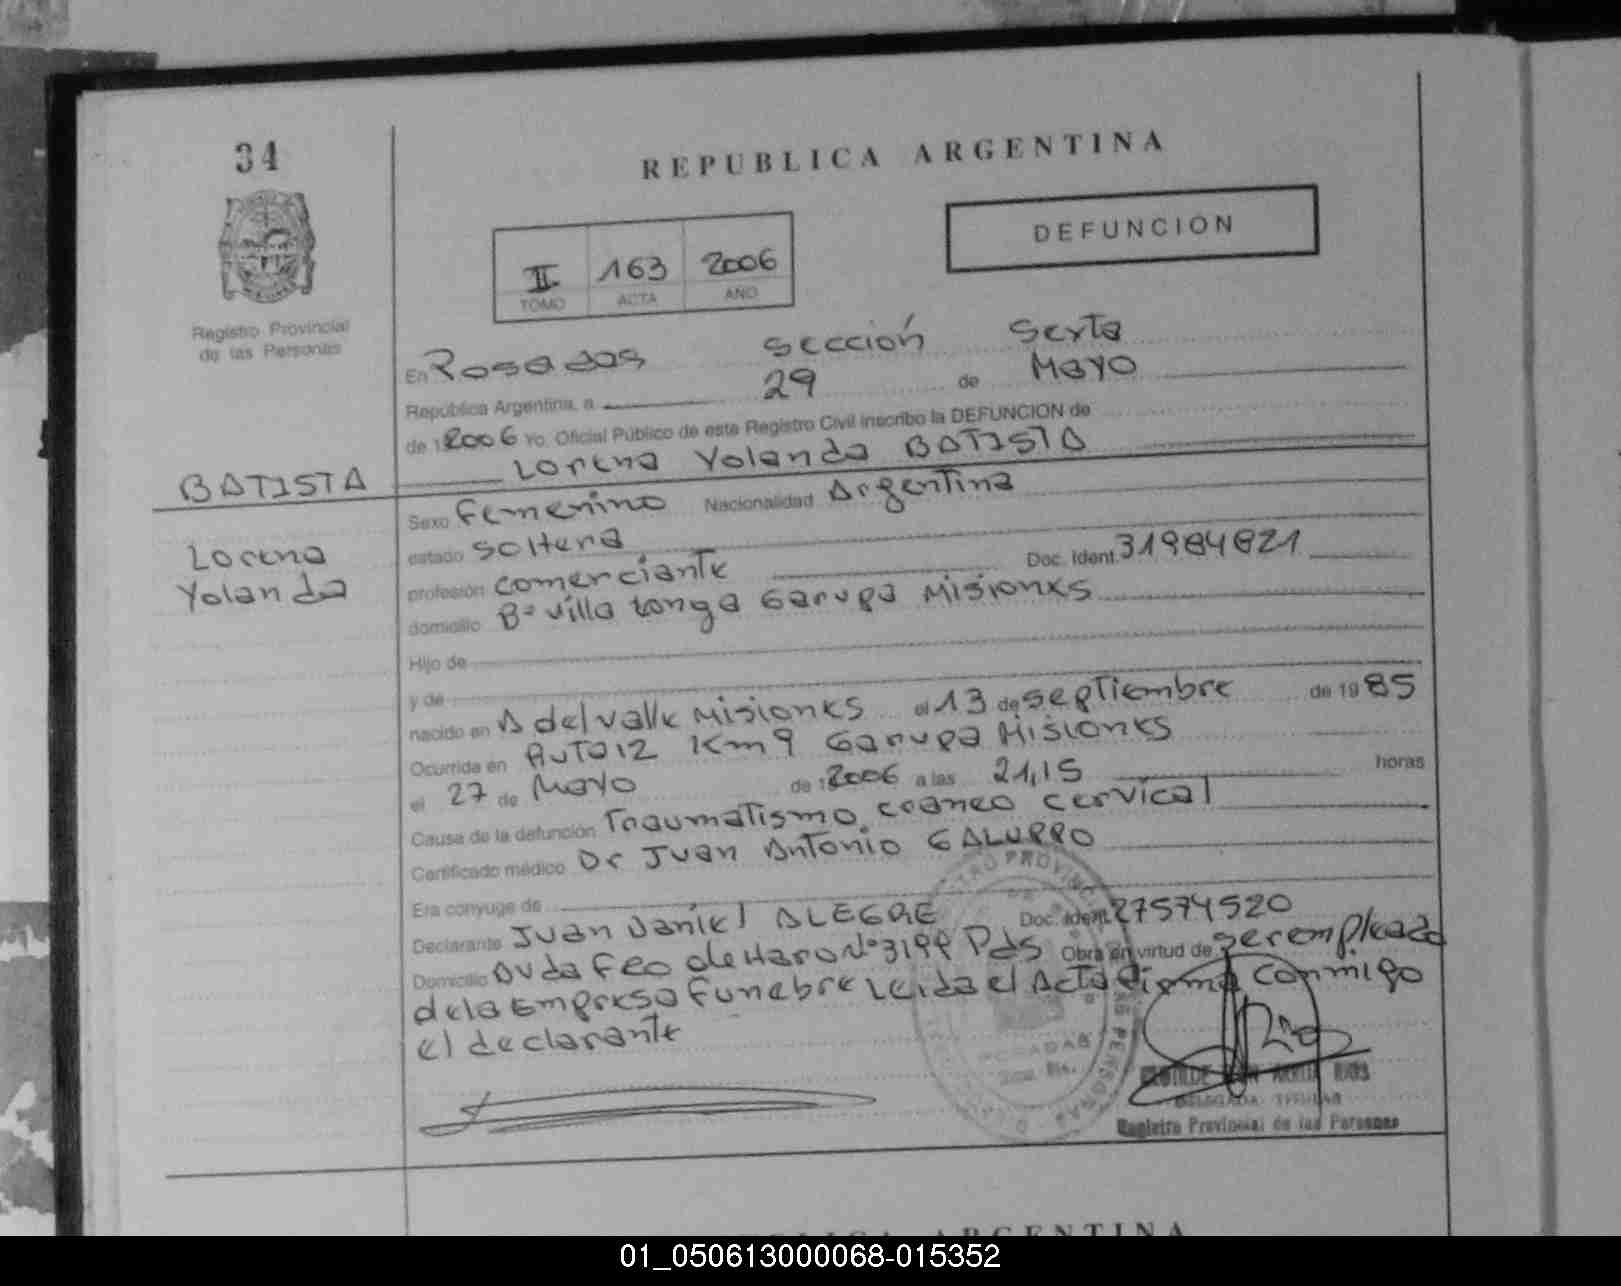 34
REPUBLICA ARGENTINA
DEFUNCION
II 163 2006
TOMO ACTA AÑO
Registro Provincial
de las Personas
En Posadas Sección Sexta
República Argentina, a 29 de Mayo
de 1 2006 Yo, Oficial Público de este Registro Civil inscribo la DEFUNCION de
Lorena Yolanda BATISTA
BATISTA
Lorena
Yolanda
Sexo Femenino Nacionalidad Argentina
estado Soltera
profesión comerciante Doc. Ident. 31984821
domicilio Bº villa Longa Garupa Misiones
Hijo de
y de
nacido en A del valle Misiones el 13 de septiembre de 19 85
Ocurrida en Ruta 12 Km 9 Garupa Misiones
el 27 de Mayo de 1 2006 a las 21,15 horas
Causa de la defunción Traumatismo craneo cervical
Certificado médico Dr Juan Antonio GALUPPO
Era conyuge de
Declarante Juan Daniel ALEGRE Doc. Ident. 27574520
Domicilio Avda Fco de Haro Nº 3199 Pds Obra en virtud de ser empleado
de la Empresa Funebre Leida el Acta Firma conmigo
el declarante
POSADAS
DELEGADA TITULAR
Registro Provincial de las Personas
REPUBLICA ARGENTINA
01_050613000068-015352